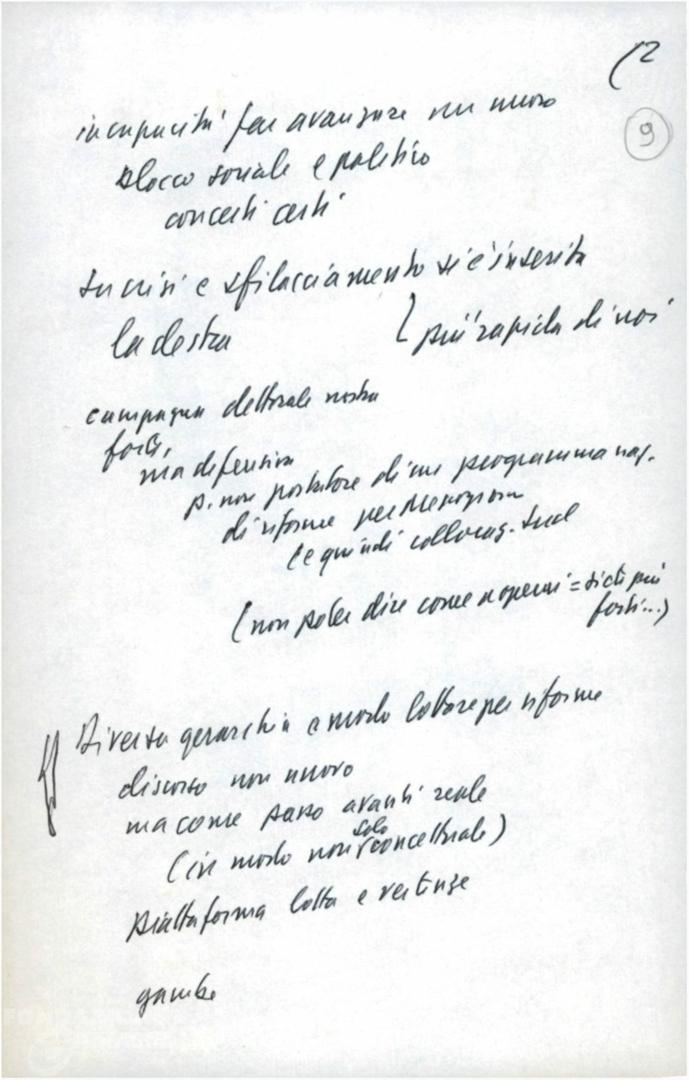 (2
9
incapacità far avanzare un nuovo
blocco sociale e politico
concetti certi
su crisi e sfilacciamento si è inserita
la destra
più rapida di noi
campagna elettorale nostra
forte,
ma difensiva
p. non portatore di un programma naz.
di riforme per Mezzogiorno
(e quindi collocaz. Sud
(non poter dire come operai = siete più
forti...)
Diversa gerarchia e modo lottare per riforme
discorso non nuovo
ma come passo avanti reale
solo
(in modo non concettuale)
Piattaforma lotta e vertenze
gambe